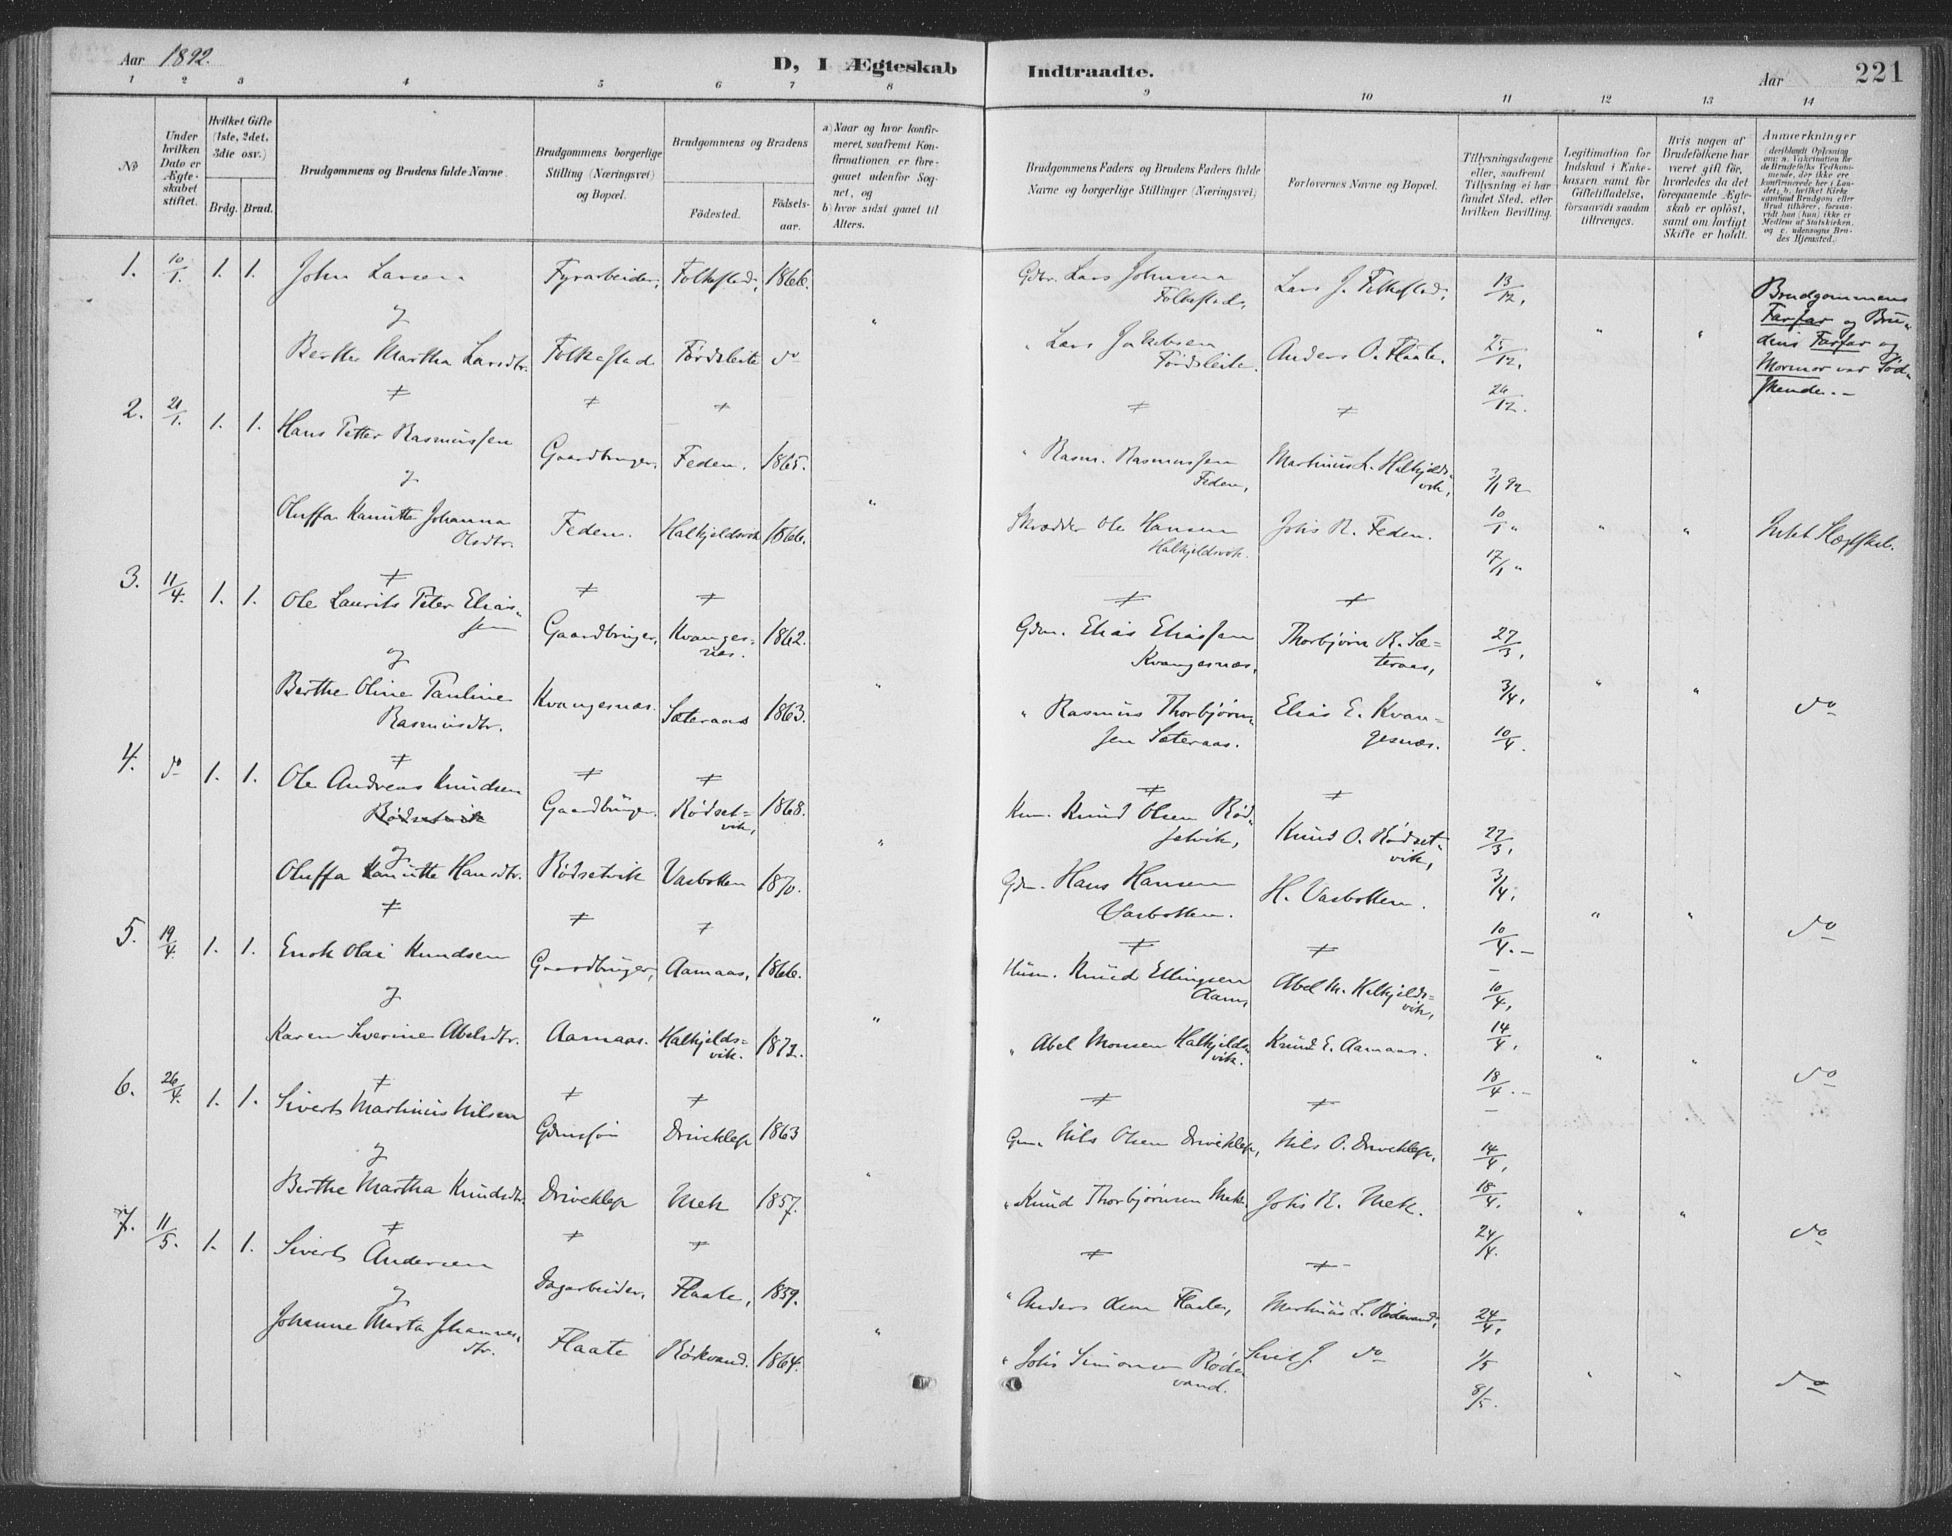 Aar 1892.
D, I Ægteskab Indtraadte.
Aar
221
1 2 3 4 5 6 7 8 9 10 11 12 13 14
No
Under hvilken Dato er Ægteskabet stiftet.
Hvilket Gifte (1ste, 2det, 3die osv.)
Brdg. Brud.
Brudgommens og Brudens fulde Navne.
Brudgommens borgerlige Stilling (Næringsvei) og Bopæl.
Brudgommens og Brudens
Fødested.
Fødselsaar.
a) Naar og hvor konfirmeret, saafremt Konfirmationen er foregaaet udenfor Sognet, og
b) hvor sidst gaaet til Alters.
Brudgommens Faders og Brudens Faders fulde Navne og borgerlige Stillinger (Næringsvei)
Forlovernes Navne og Bopæl.
Tillysningsdagene eller, saafremt Tillysning ei har fundet Sted, efter hvilken Bevilling.
Legitimation for Indskud i Enkekassen samt for Giftetilladelse, forsaavidt saadan tiltrænges.
Hvis nogen af Brudefolkene har været gift før, hvorledes da det foregaaende Ægteskab er opløst, samt om lovligt Skifte er holdt.
Anmærkninger
1. 10/1. 1. 1. John Larsen Fyrarbeider, Folkestad, 1866. Gdbr. Lars Johnsen Folkestad, Lars J. Folkestad, 13/12,
og
Berthe Martha Larsdtr. Folkestad Førdsleite do " Lars Jakobsen Førdsleite. Anders O. Flaate. 25/12, 26/12.
Brudgommens Farfar og Brudens Farfar og Mormor var Sødskende. –
2. 21/1. 1. 1. Hans Petter Rasmussen Gaardbruger, Feden. 1865. " Rasm. Rasmussen Feden, Martinus L. Halkjeldsvik, 3/1 92
og
Oluffa Kanutte Johanna Olsdtr. Feden. Halkjeldsvik 1866. Skrædder Ole Hansen Halkjeldsvik. Johs R. Feden. 10/1 " 17/1 " Intet Slægtskab.
3. 11/4. 1. 1. Ole Laurits Peter Eliassen Gaardbruger, Kvangesnæs. 1862. Gdm. Elias Eliassen Kvangesnæs, Thorbjørn R. Sæteraas, 27/3,
og
Berthe Oline Pauline Rasmusdtr. Kvangesnæs. Sæteraas 1863. " Rasmus Thorbjørnsen Sæteraas. Elias E. Kvangesnæs. 3/4, 10/4. do
4. do 1. 1. Ole Andreas Knudsen Rødsetvik Gaardbruger. Rødsetvik, 1868. Knud Olsen Rødsetvik, Knud O. Rødsetvik, 27/3,
og
Oluffa Kanutte Hansdtr. Rødsetvik Vasbotten 1870. Gdm. Hans Hansen Vasbotten. H. Vasbotten. 3/4, 10/4. – do
5. 19/4. 1. 1. Enok Olai Knudsen Gaardbruger, Aamaas, 1866. Husm. Knud Ellingsen Aam, Abel M. Halkjeldsvik, 10/4,
og
Karen Severine Abelsdtr. Aamaas. Halkjeldsvik. 1872. " Abel Monsen Halkjeldsvik. Knud E. Aamaas. 14/4, 18/4. – do
6. 26/4. 1. 1. Sivert Martinus Nilsen Gdmssøn Driveklep 1863 Gm. Nils Olsen Driveklep, Nils O. Driveklep. 14/4,
og
Berthe Martha Knudsdtr. Driveklep Mek 1857. " Knud Thorbjørnsen Mek. Johs K. Mek. 18/4. 24/4. do
7. 11/5. 1. 1. Sivert Andersen Dagarbeider, Flaate, 1859. " Anders Flaate, Martinus L. Rødevand, 24/4,
og
Johanne Marta Johannesdtr. Flaate 1864. " Johs Simonsen Rødevand. Sivert J. do 1/5 8/5. do